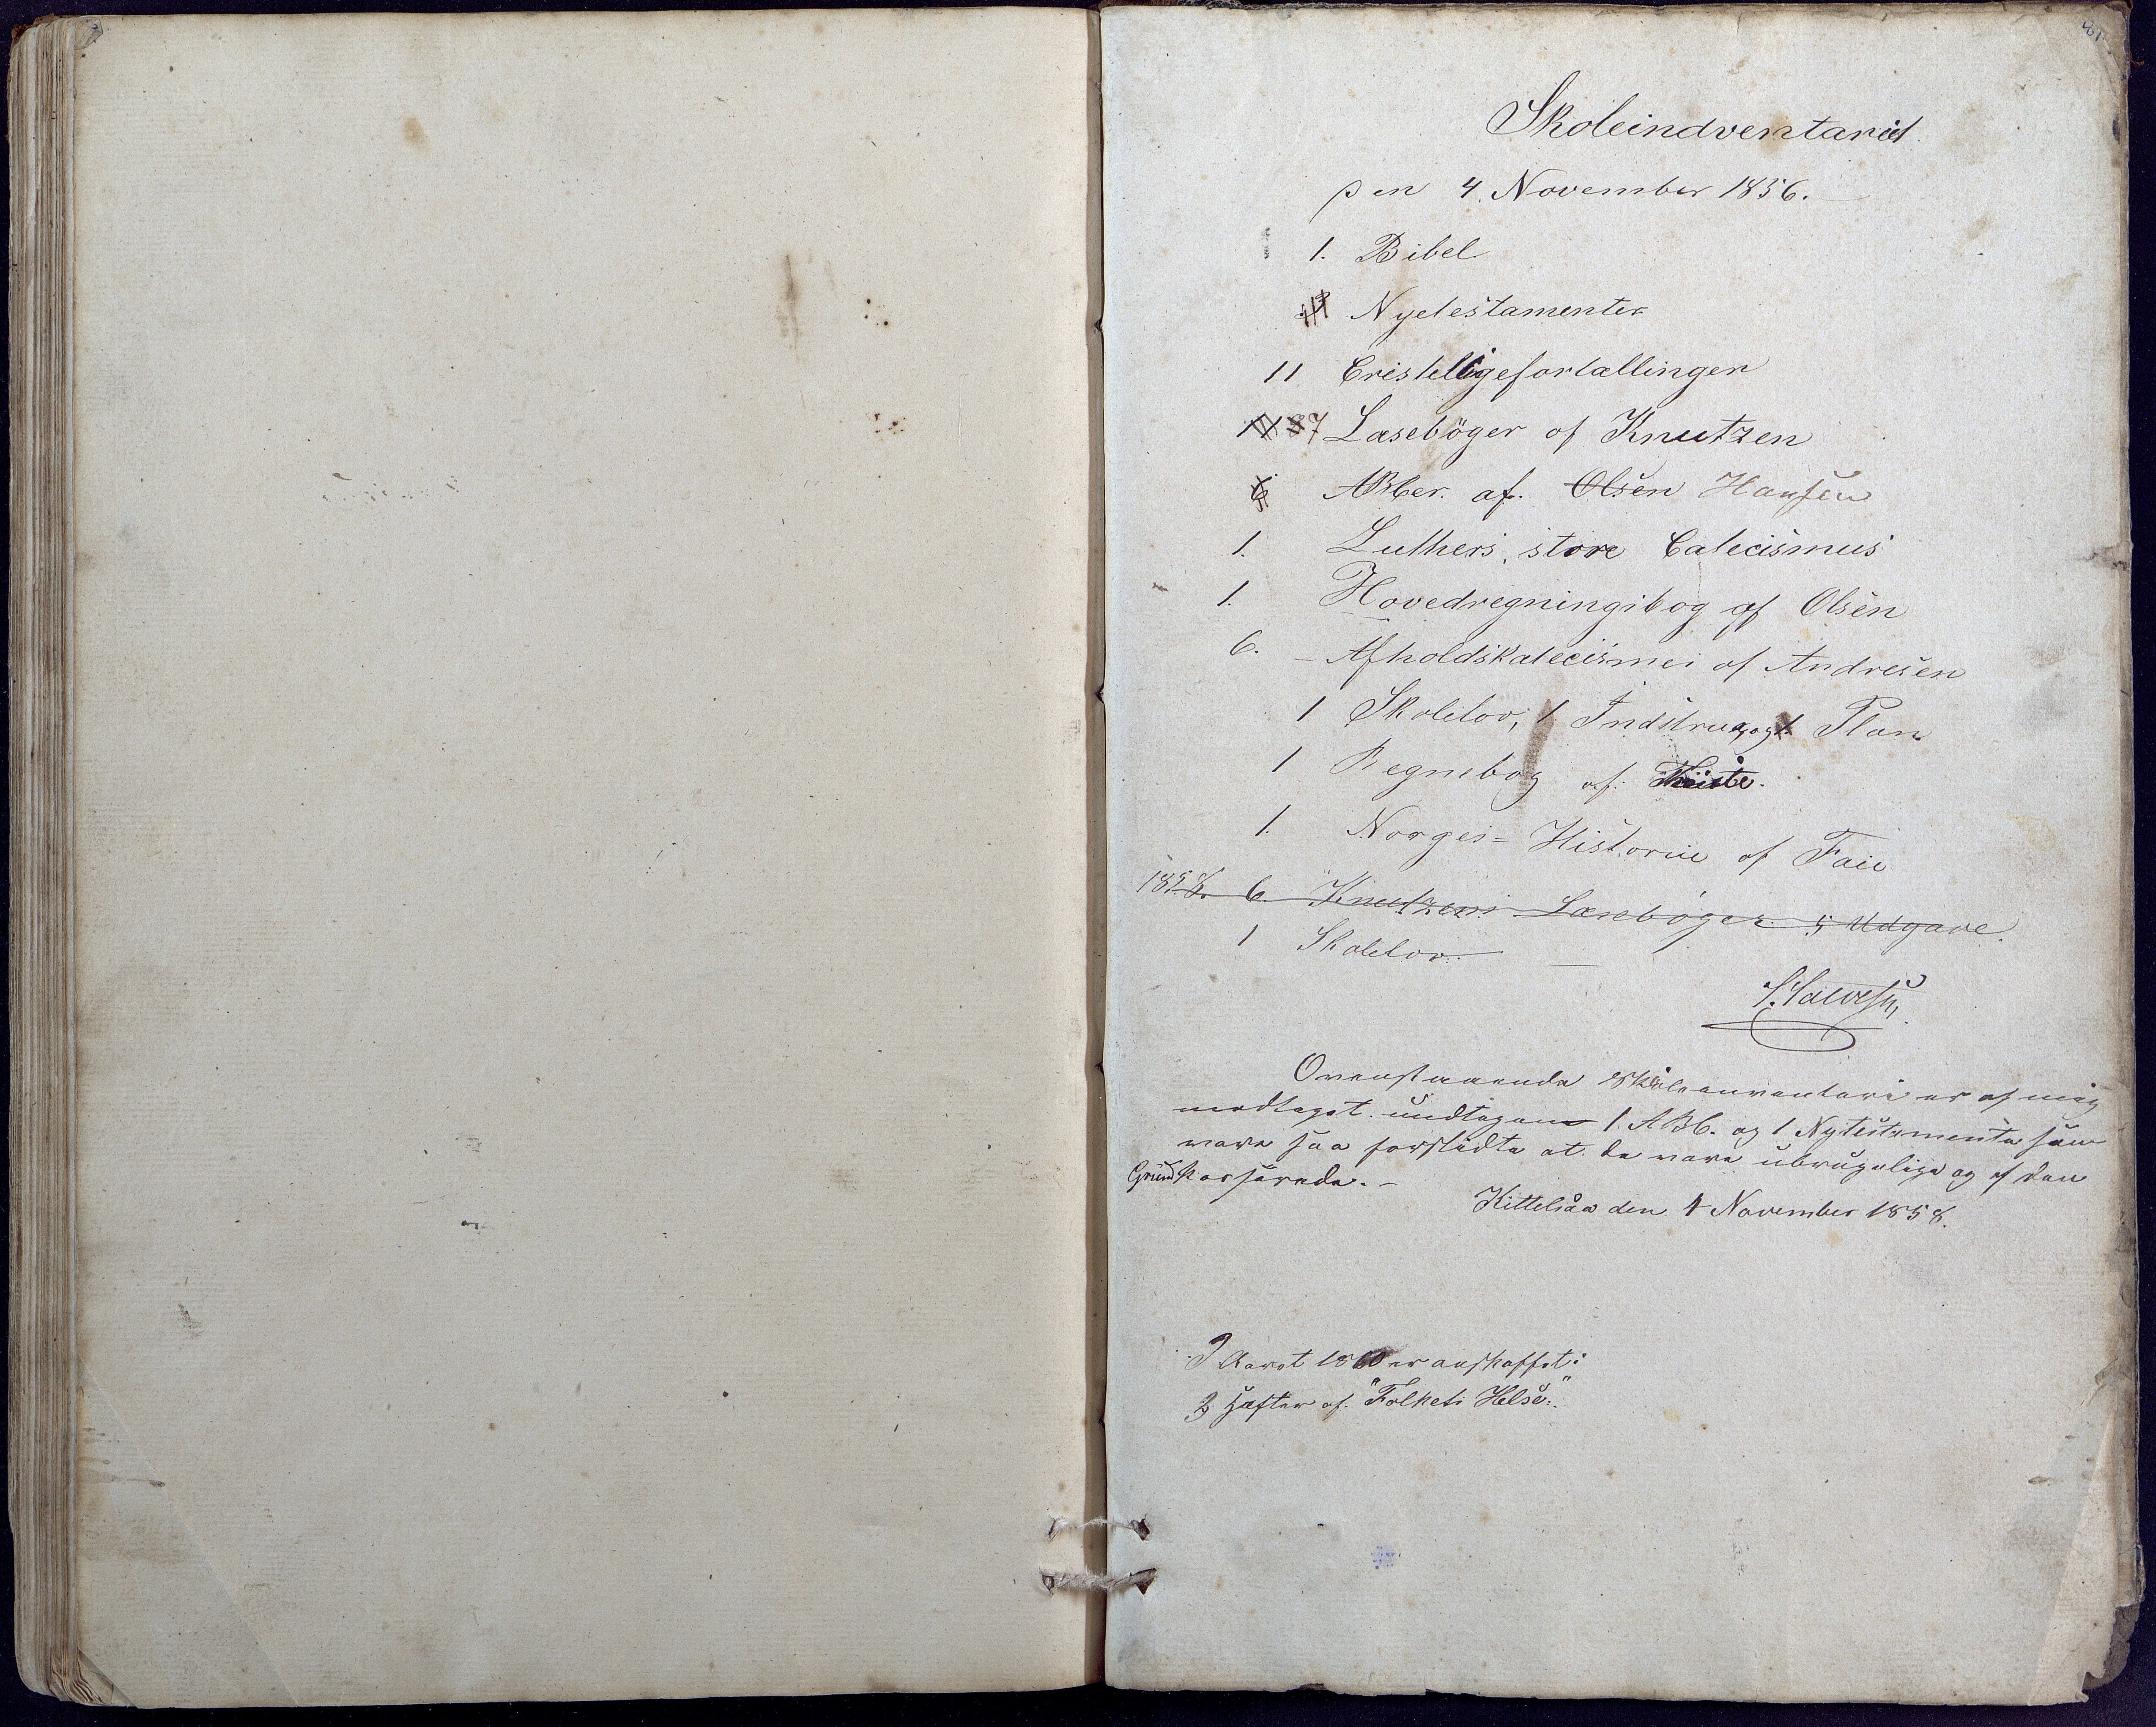 81
Skoleindventariet
Den 4. November 1856.
1. Bibel
Nyetestamenter
11 Cristeligefortællinger
7 Læsebøger of Knutzen
ABCer. af. Olsen Hansen
1. Luthers, store Catecismus
1. Hovedregningsbog af Olsen
6. Afholdskatecismei af Andresen
1 Skolelov, 1. Indstrux, og 1 Plan
1 Regnebog af:
1. Norges=Historie af Faie
1858. 6. Knutzens Læsebøger. 5 Udgave.
1 Skolelov.
Ovenstaaende Skoleinventari er af mig
modtaget undtagen 1. ABC. og 1 Nytestamente som
vare saa forslidte at de vare ubrugelige og af den
Grund kasserede.
Kittelsaa den 4 November 1858.
I Aaret 1860 er anskaffet:
Hefter af. "Folkets Helse".